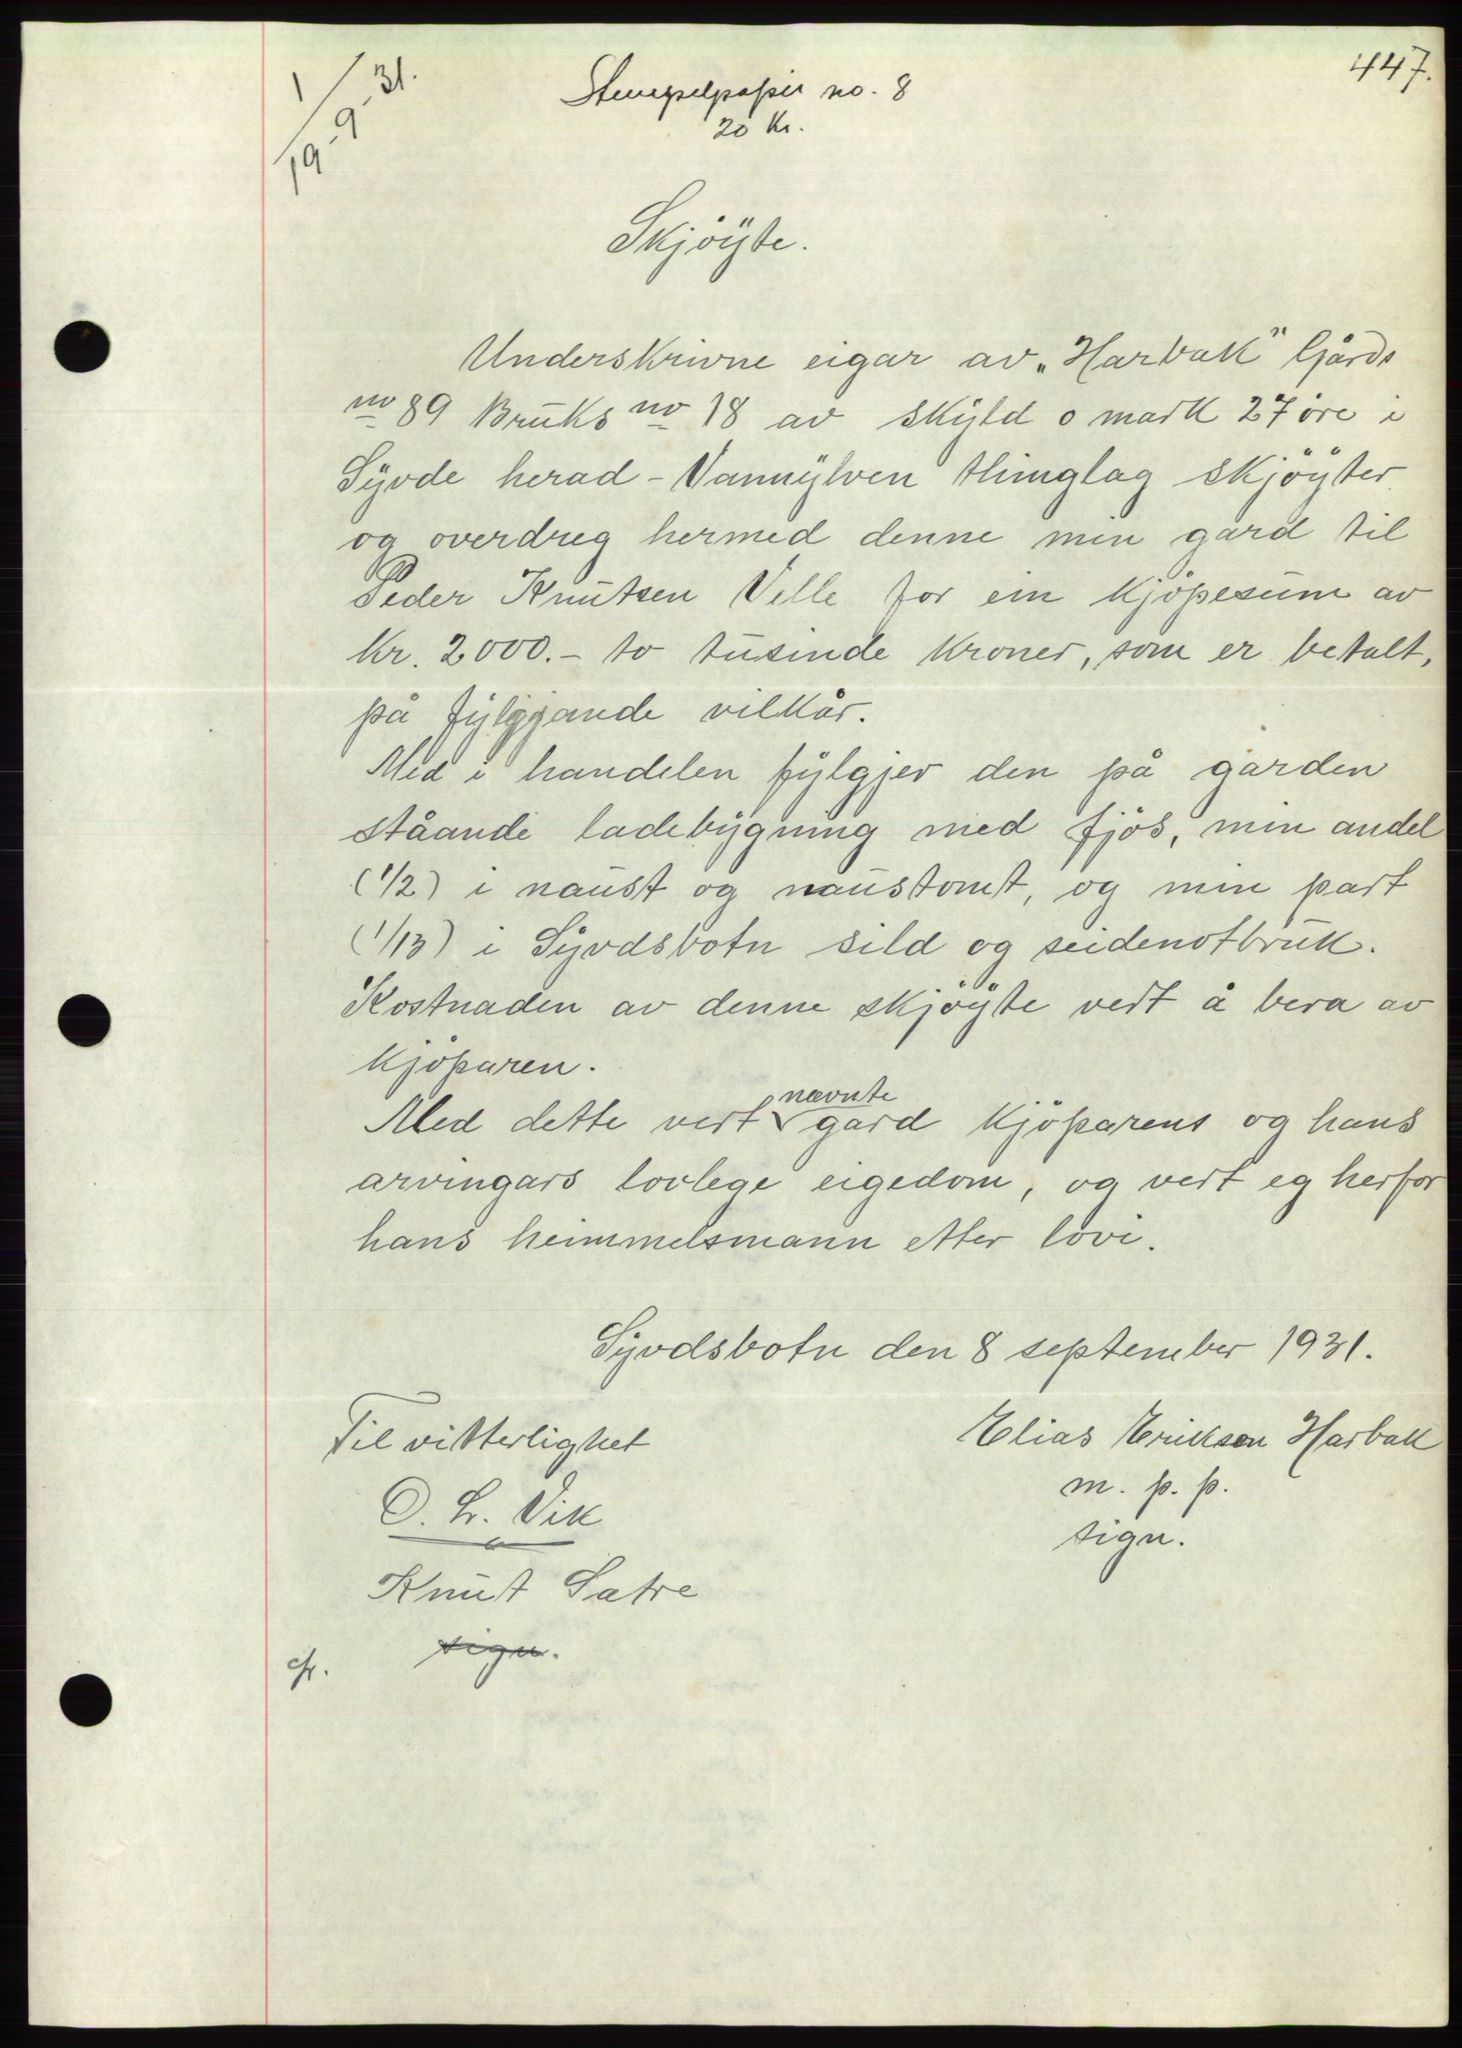 447.
1/19-9-31.
Stempelpapir no. 8
20 Kr.
Skjöyte.
Underskrivne eigar av "Harbak" Gårds
no 89 Bruks no 18 av skyld 0 mark 27 öre i
Syvde herad - Vannylven thinglag skjöyter
og overdreg hermed denne min gard til
Peder Knutsen Velle for ein kjöpesum av
kr. 2000.- to tusinde kroner, som er betalt,
på fylgjande vilkår.
Med i handelen fylgjer den på garden
ståande ladebygning med fjös, min andel
(1/2) i naust og naustomt, og min part
(1/13) i Syvdsbotn sild og seidenotbruk.
Kostnaden av denne skjöyte vert å bera av
kjöparen.
Med dette vert nævnte gard kjöparens og hans
arvingars lovlege eigedom, og vert eg herfor
hans heimmelsmann etter lovi.
Syvdsbotn den 8 september 1931.
Til vitterlighet
Elias Erikson Harbak
m. p. p.
sign.
O. L. Vik
Knut Satre
sign.